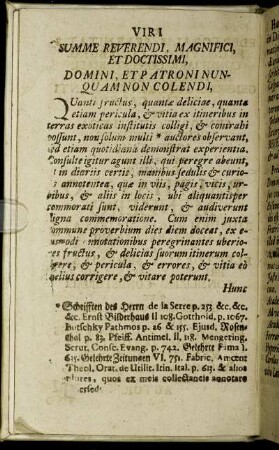 VIRI
SUMME REVERENDI, MAGNIFICI,
ET DOCTISSIMI,
DOMINI, ET PATRONI NUN-
QUAM NON COLENDI,
Quanti fructus, quantæ deliciæ, quanta
etiam pericula, & vitia ex itineribus in
terras exoticas institutis colligi, & contrahi
possunt, non solum multi * auctores observant,
sed etiam quotidiana demonstrat experientia.
Consulte igitur agunt illi, qui peregre abeunt,
in diariis certis, manibus sedulis & curio-
annotentea, quæ in viis, pagis, vicis, ur-
ibus, & aliis in locis, ubi aliquantisper
commorati sunt, viderunt, & audiverunt
digna commemoratione. Cum enim juxta
commune proverbium dies diem doceat, ex e-
usmodi annotationibus peregrinantes uberio-
res fructus, & delicias suorum itinerum col-
gere, & pericula, & errores, & vitia eo
felius corrigere, & vitare poterunt.
Hunc
Schrifften des Herrn de la Serre p. 253 &c. &c.
&c. Ernst Bilderhaus II 108. Gotthold, p. 1067.
Butschky Pathmos p. 26 & 155. Ejusd. Rosen-
thal p. 83. Pfeiff. Antimel. II, 118. Mengering.
Scrut. Consc. Evang. p. 742. Gelehrte Fama I.
615. Gelehrte Zeitungen VI. 751. Fabric. Amœnt
Theol. Orat. de Utilit. Itin. Ital. p. 613. & alios
plures, quos ex meis collectaneis annotare